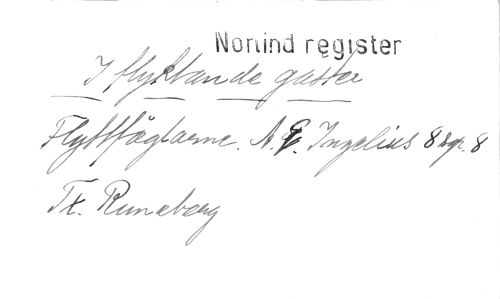 Norlind register
I flyktande gäster
— — — —
Flyttfåglarne. A. E. Ingelius 8 sgr. 8
Tx. Runeberg